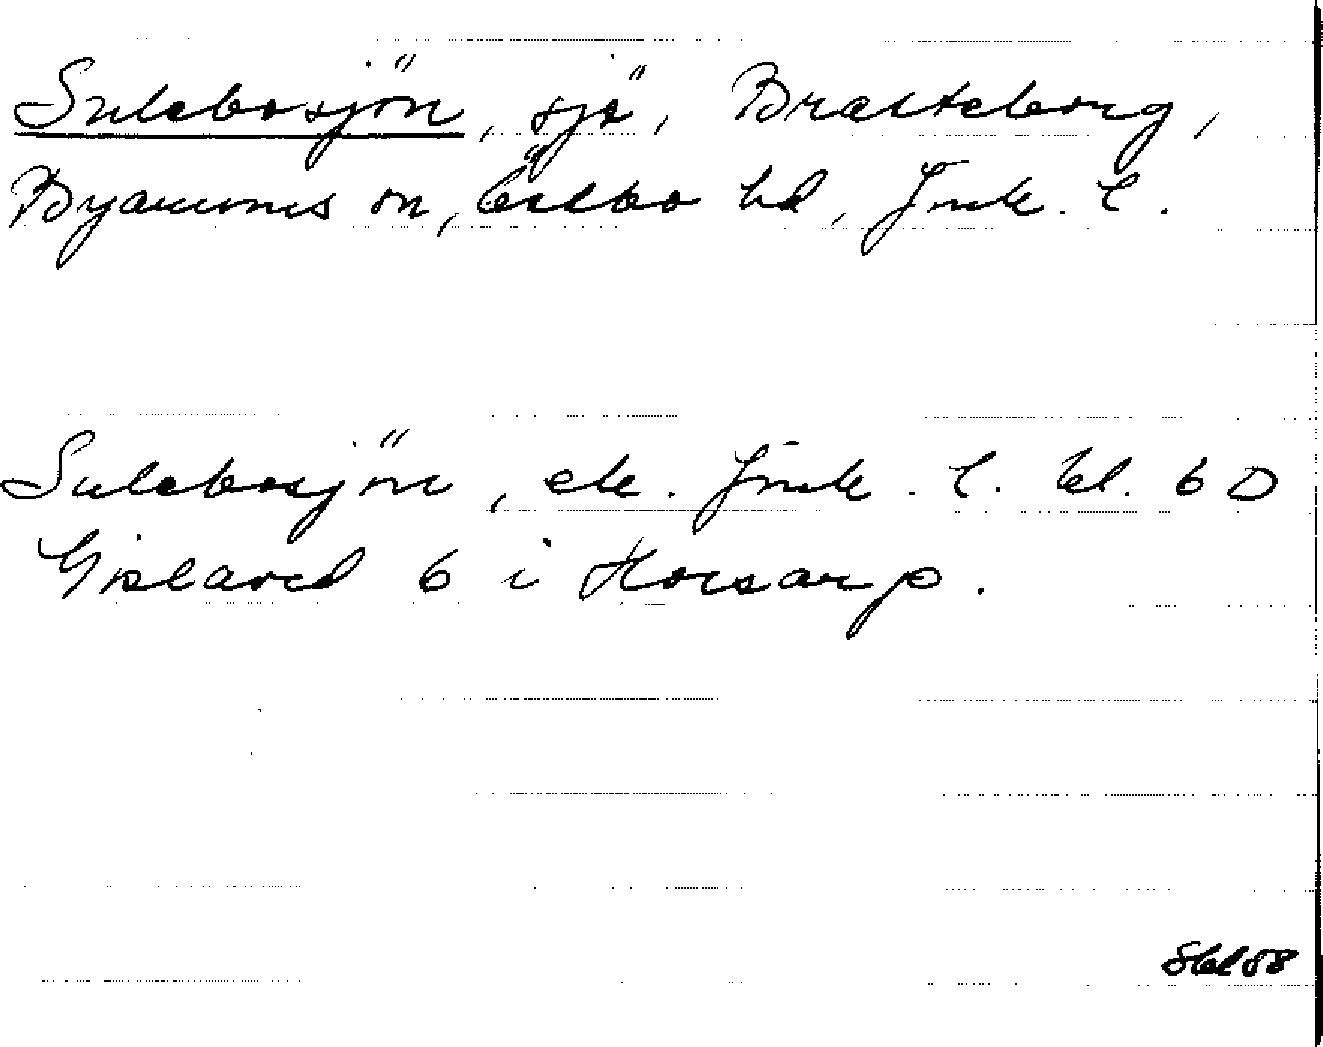 Sulebosjön, sjö, Bratteborg,
Byarums sn, Östbo hd, Jnk. l.
Sulebosjön, ek. Jnk. l. bl. 6 D
Gislaved 6 i Horsarp.